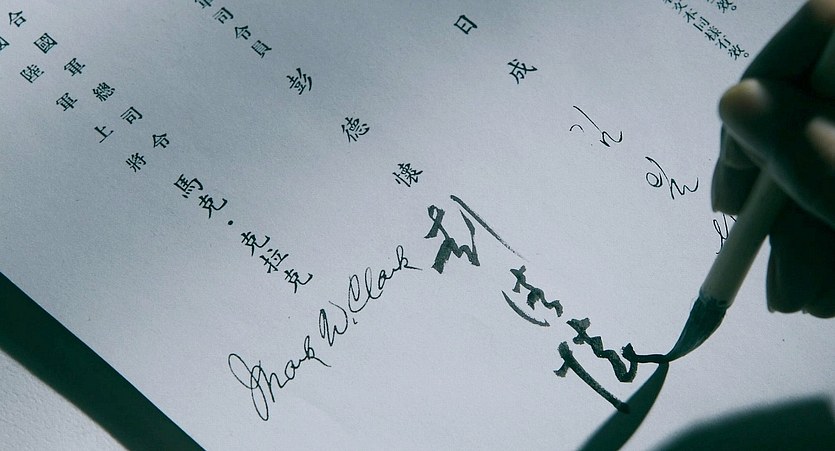 效。
文本同樣有效。
日成
司令員
彭德懷
彭德懷
合國軍總司令
陸軍上將
馬克·克拉克
Mark W. Clark